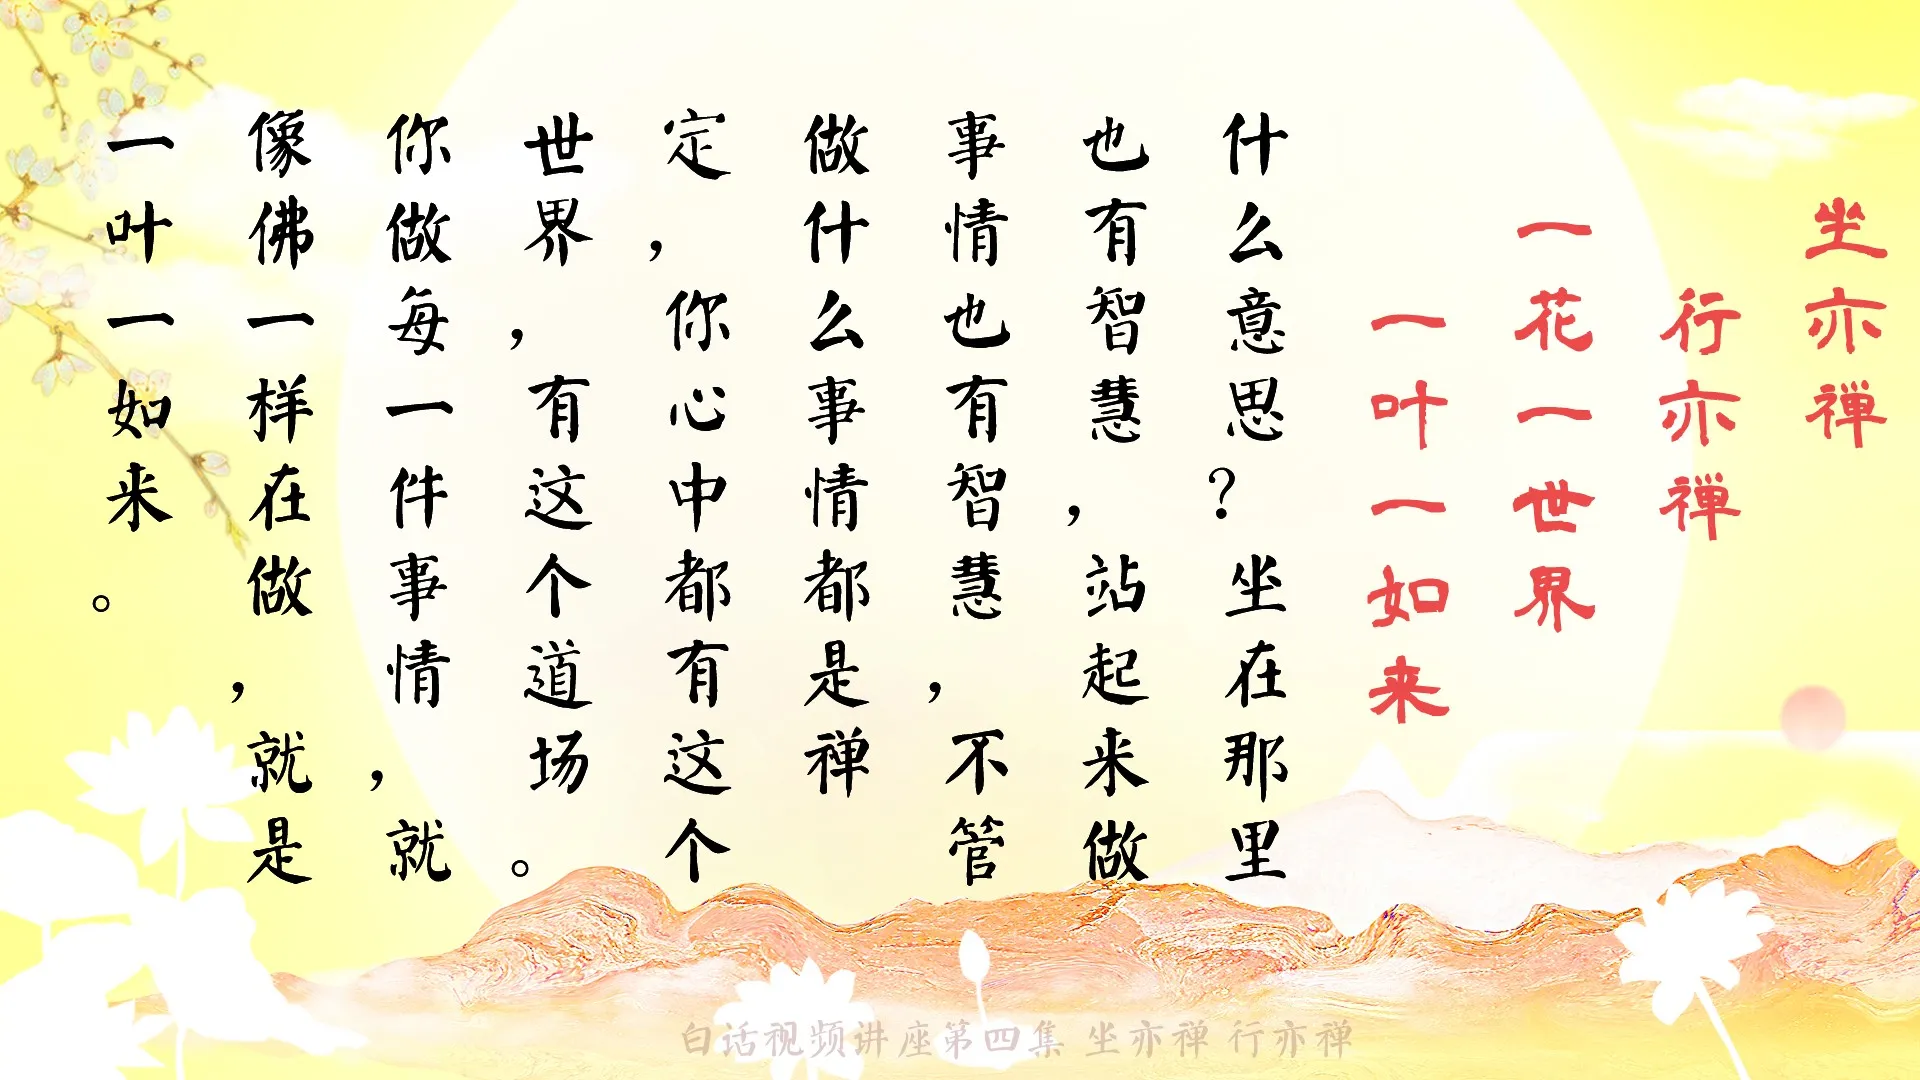 坐亦禅
行亦禅
一花一世界
一叶一如来
什么意思？坐在那里
也有智慧，站起来做
事情也有智慧，不管
做什么事情都是禅
定，你心中都有这个
世界，有这个道场。
你做每一件事情，就
像佛一样在做，就是
一叶一如来。
白话视频讲座第四集 坐亦禅 行亦禅